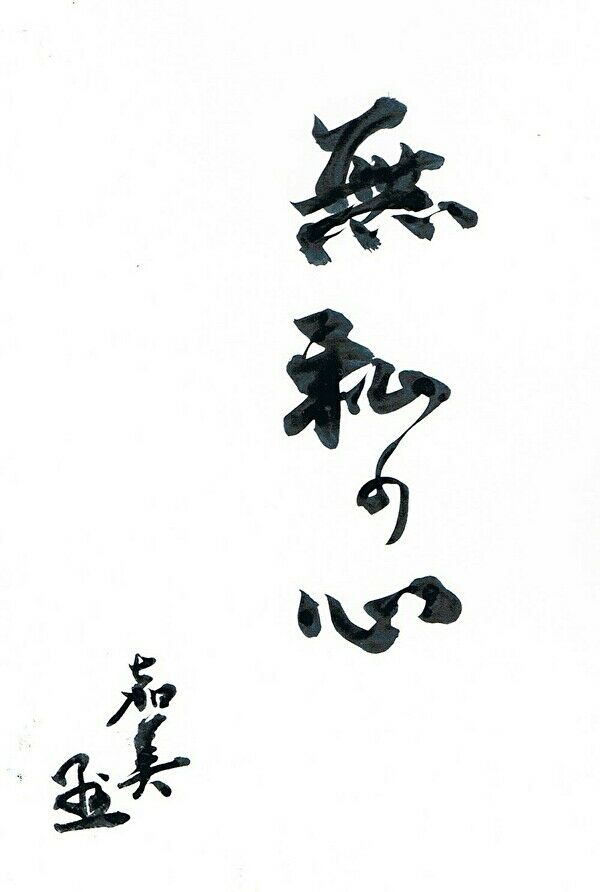 無私の心
嘉美
孟